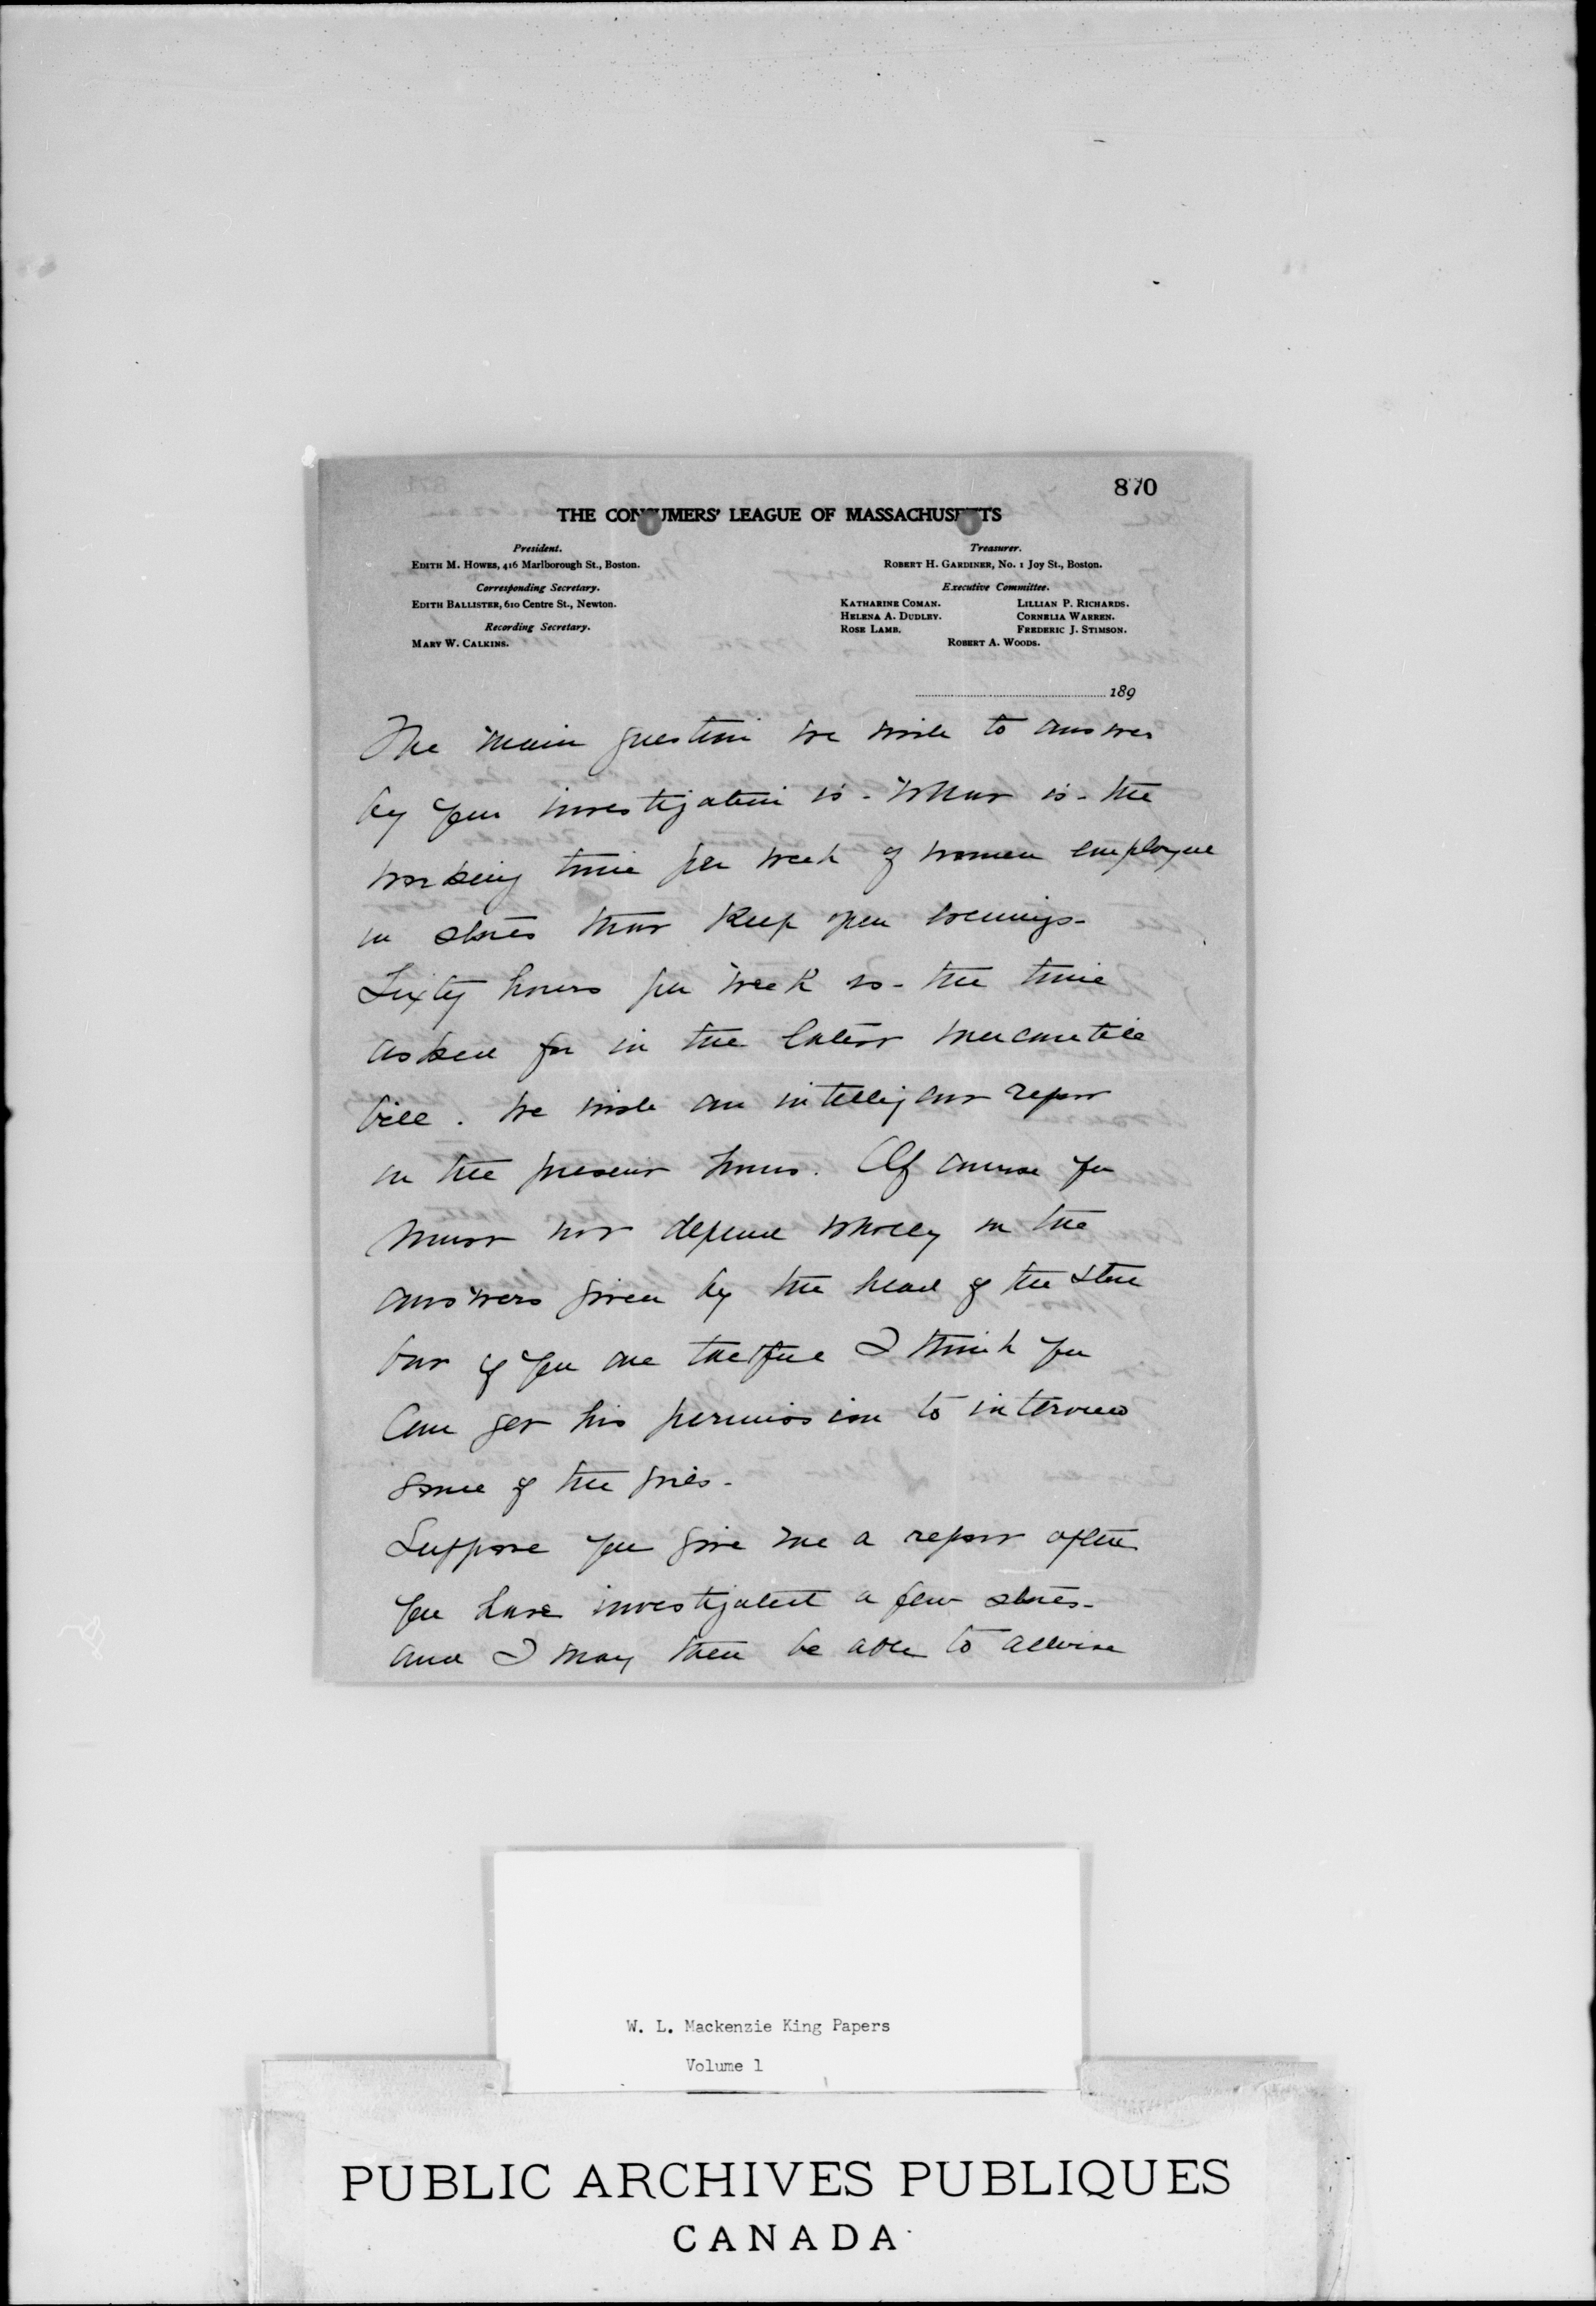 870
THE CONSUMERS' LEAGUE OF MASSACHUSETTS
President.
EDITH M. HOWES, 416 Marlborough St., Boston.
Corresponding Secretary.
EDITH BALLISTER, 610 Centre St., Newton.
Recording Secretary.
MARY W. CALKINS.
Treasurer.
ROBERT H. GARDINER, No. 1 Joy St., Boston.
Executive Committee.
KATHARINE COMAN. LILLIAN P. RICHARDS.
HELENA A. DUDLEY. CORNELIA WARREN.
ROSE LAMB. FREDERIC J. STIMSON.
ROBERT A. WOODS.
189
The main question we wish to answer
by your investigation is - What is - the
working time per week of women employed
in stores that keep open evenings -
Sixty hours per week is - the time
asked for in the latest mercantile
bill. We wish an intelligent report
on the present hours. Of course you
must not depend wholly on the
answers given by the head of the store
but if you are tactful I think you
can get his permission to interview
some of the girls -
Suppose you give me a report after
you have investigated a few stores -
and I may then be able to advise
W. L. Mackenzie King Papers
Volume 1
PUBLIC ARCHIVES PUBLIQUES
CANADA